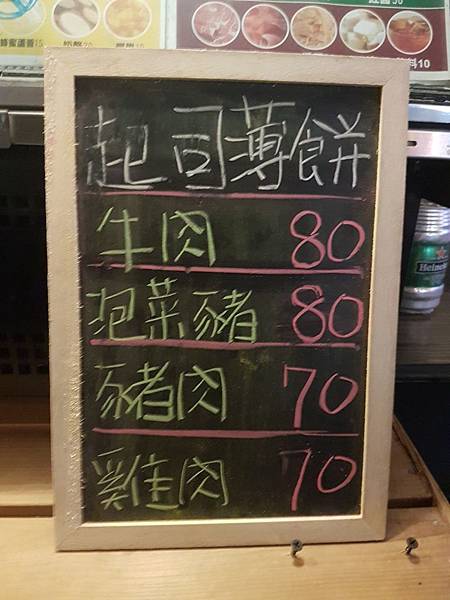 蜂蜜蘆薈15
奶酪20
料10
起司薄餅
牛肉 80
泡菜豬 80
豬肉 70
雞肉 70
Heineken